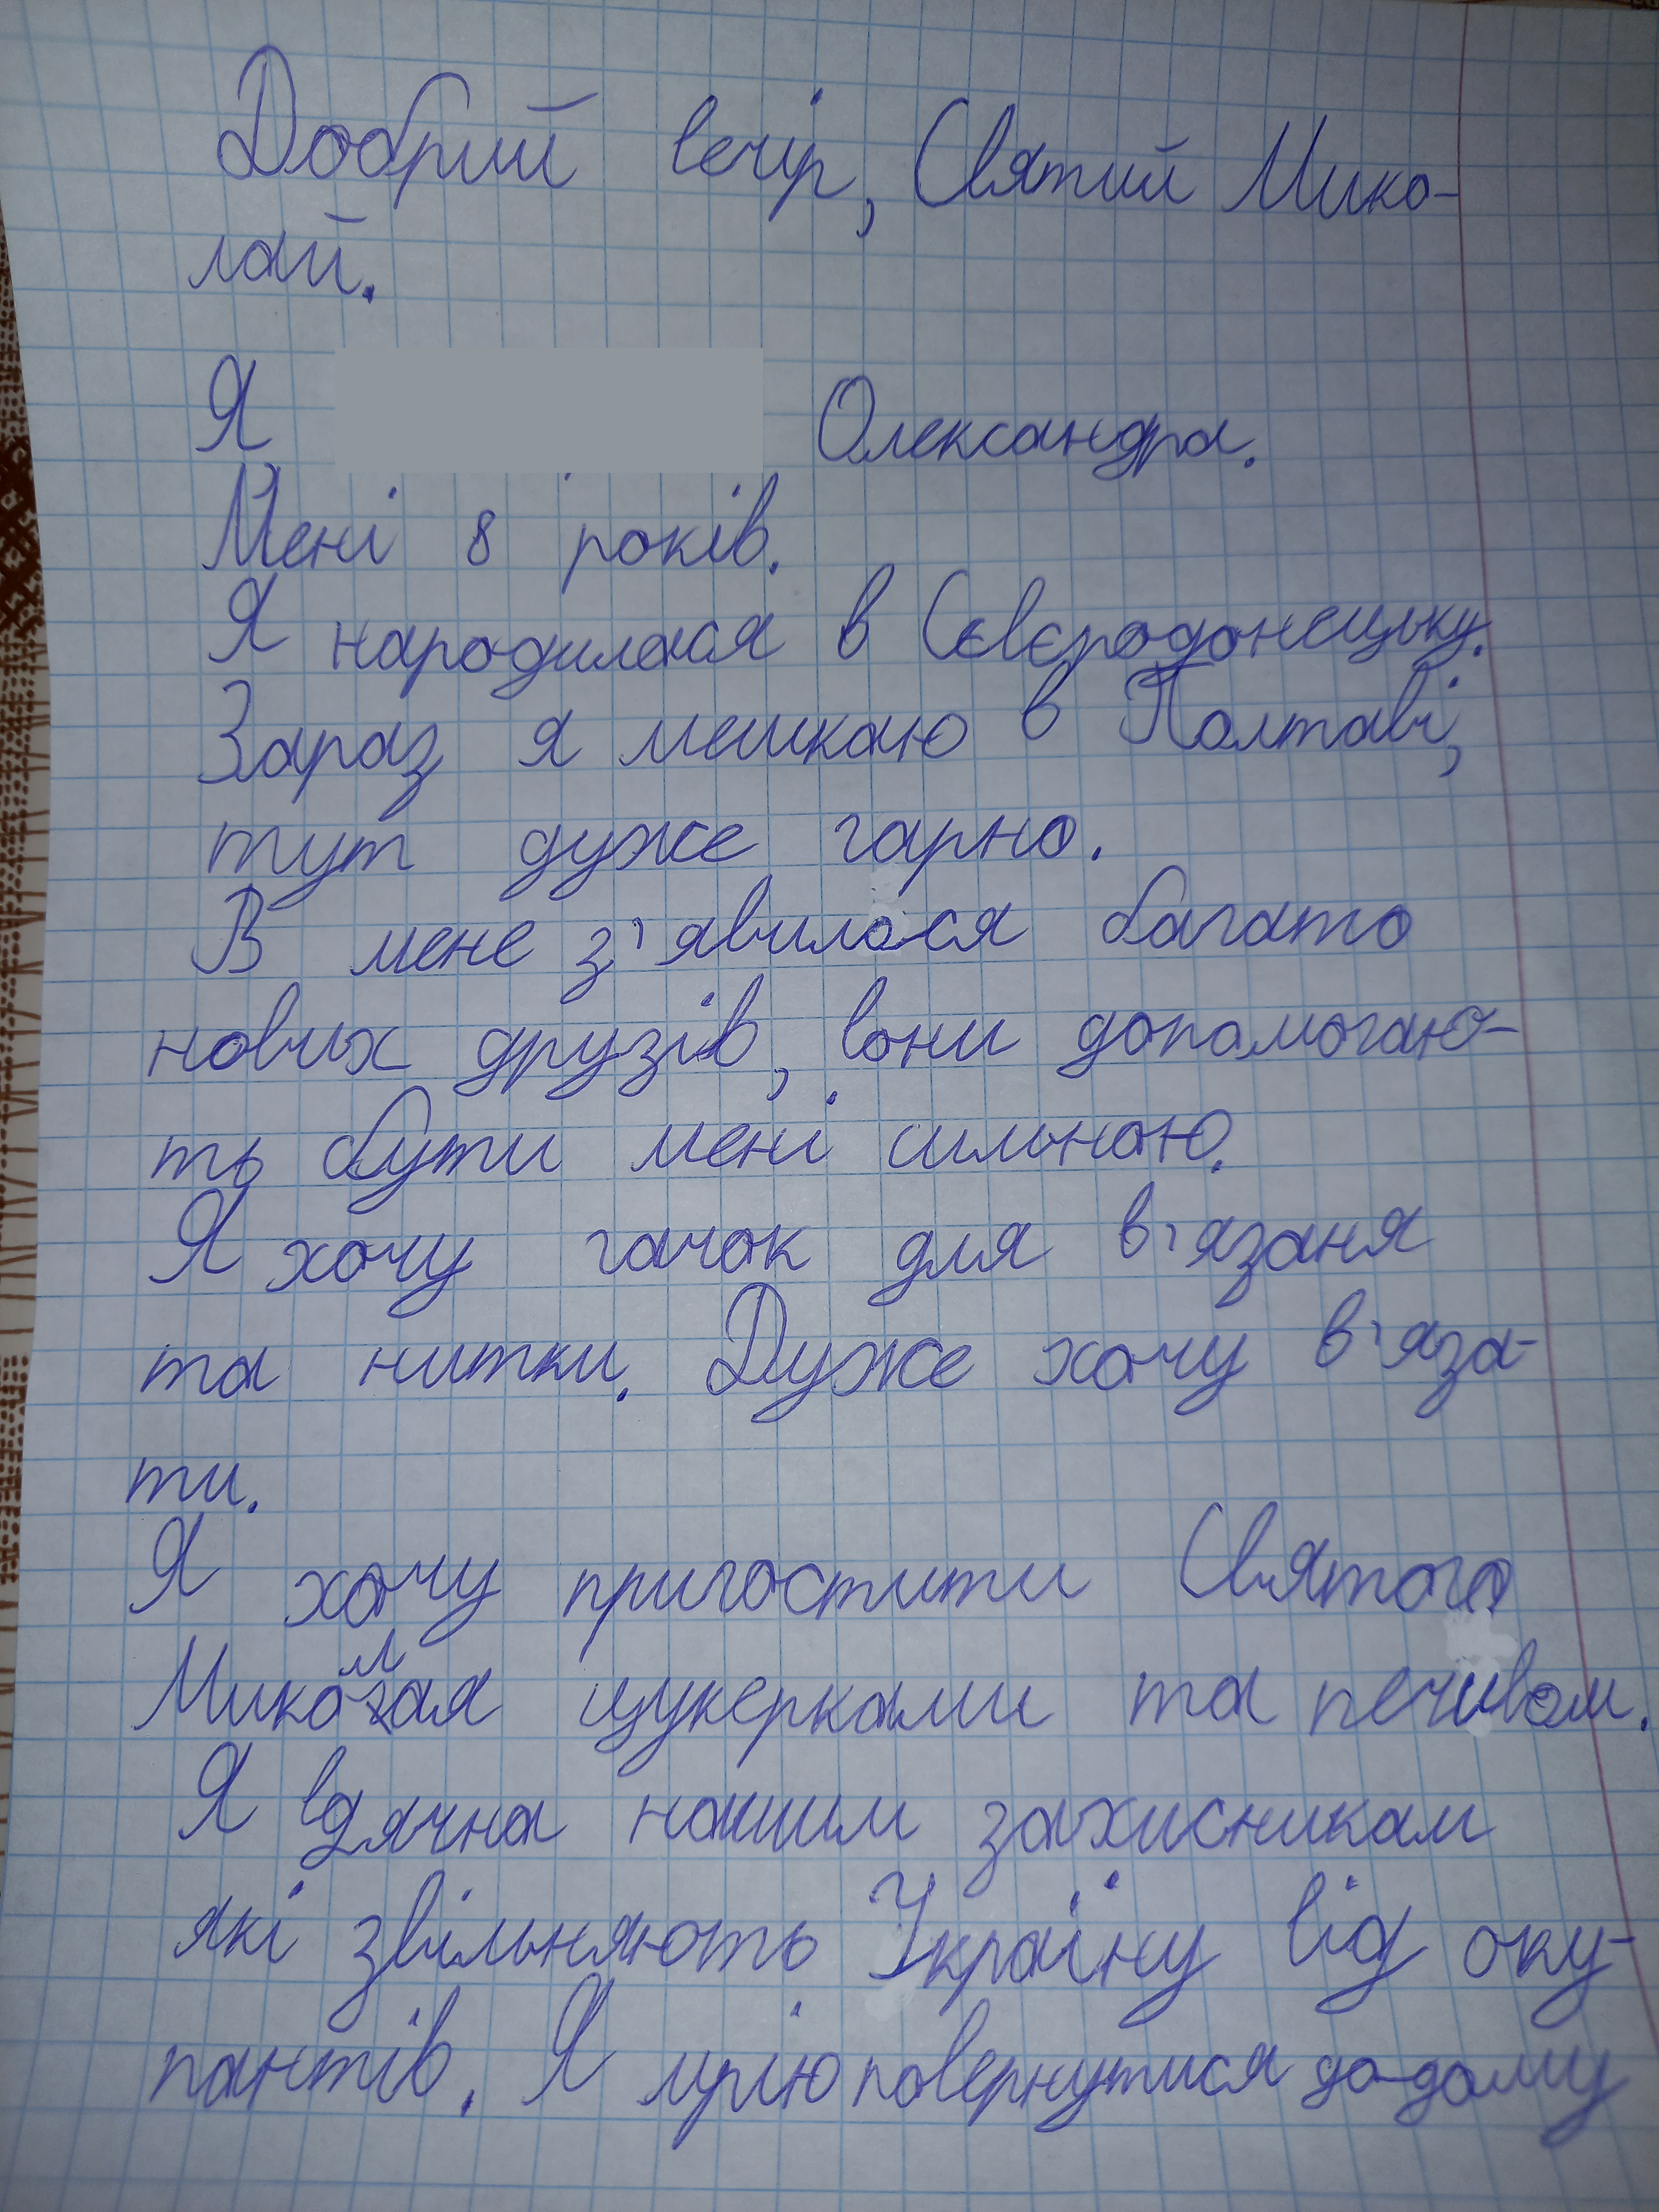 Добрий вечір, Святий Мико-
лай.
Я Олександра.
Мені 8 років.
Я народилася в Сєвєродонецьку.
Зараз я мешкаю в Полтаві,
тут дуже гарно.
В мене з'явилося багато
нових друзів, вони допомогаю-
ть бути мені сильною.
Я хочу гачок для в'язаня
та нитки. Дуже хочу в'яза-
ти.
Я хочу пригостити Святого
Миколая цукерками та печивом.
Я вдячна нашим захисникам
які звільняють Україну від оку-
пантів. Я мрію повернутися до-дому